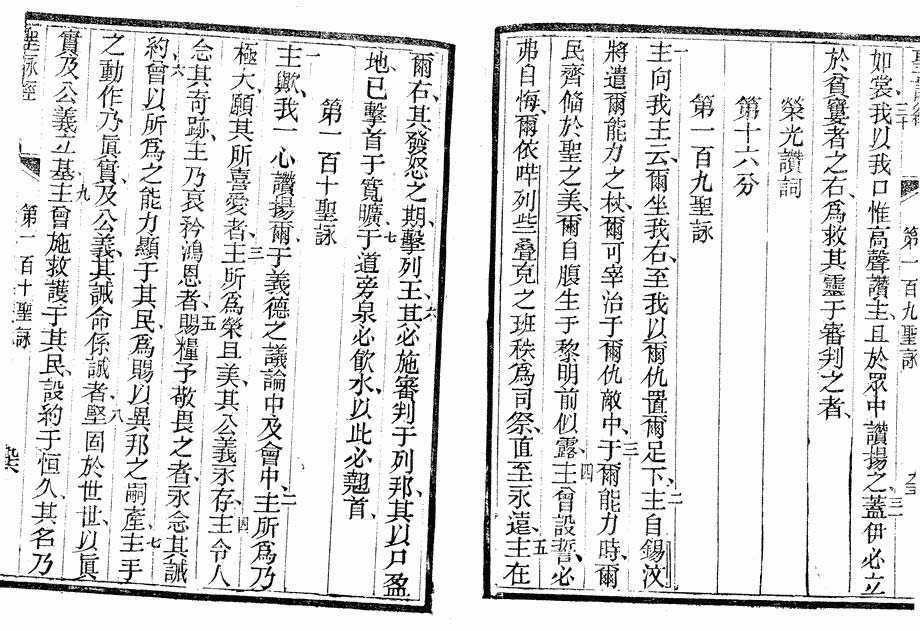 第一百九聖詠
如裳我以我口惟高聲讚主、且於眾中讚揚之、三一蓋伊必立
於貧窶者之右、爲救其靈于審判之者、
榮光讚詞
第十六分
第一百九聖詠
一主向我主云、爾坐我右、至我以爾仇置爾足下、二主自錫汶
將遣爾能力之杖、爾可宰治于爾仇敵中、三于爾能力時、爾
民齊偹於聖之美、爾自腹生于黎明前似露、四主曾設誓、必
弗自悔、爾依哶列些叠克之班秩爲司祭、直至永遠、五主在
爾右、其發怒之期、擊列王、六其必施審判于列邦、其以口盈
地、已擊首于寬曠、七于道旁泉必飮水、以此必翹首、
第一百十聖詠
一主歟、我一心讚揚爾、于義德之議論中及會中、二主所爲乃
極大、願其所喜愛者、三主所爲榮且美、其公義永存、四主令人
念其奇跡、主乃哀矜鴻恩者、五賜糧予敬畏之者、永念其誡
約、六曾以所爲之能力顯于其民、爲賜以異邦之嗣產、七主手
之動作乃眞實、及公義、其誡命係誠者、八堅固於世世、以眞
實及公義立基、九主曾施救護于其民、設約于恒久、其名乃
聖詠經
第一百十聖詠